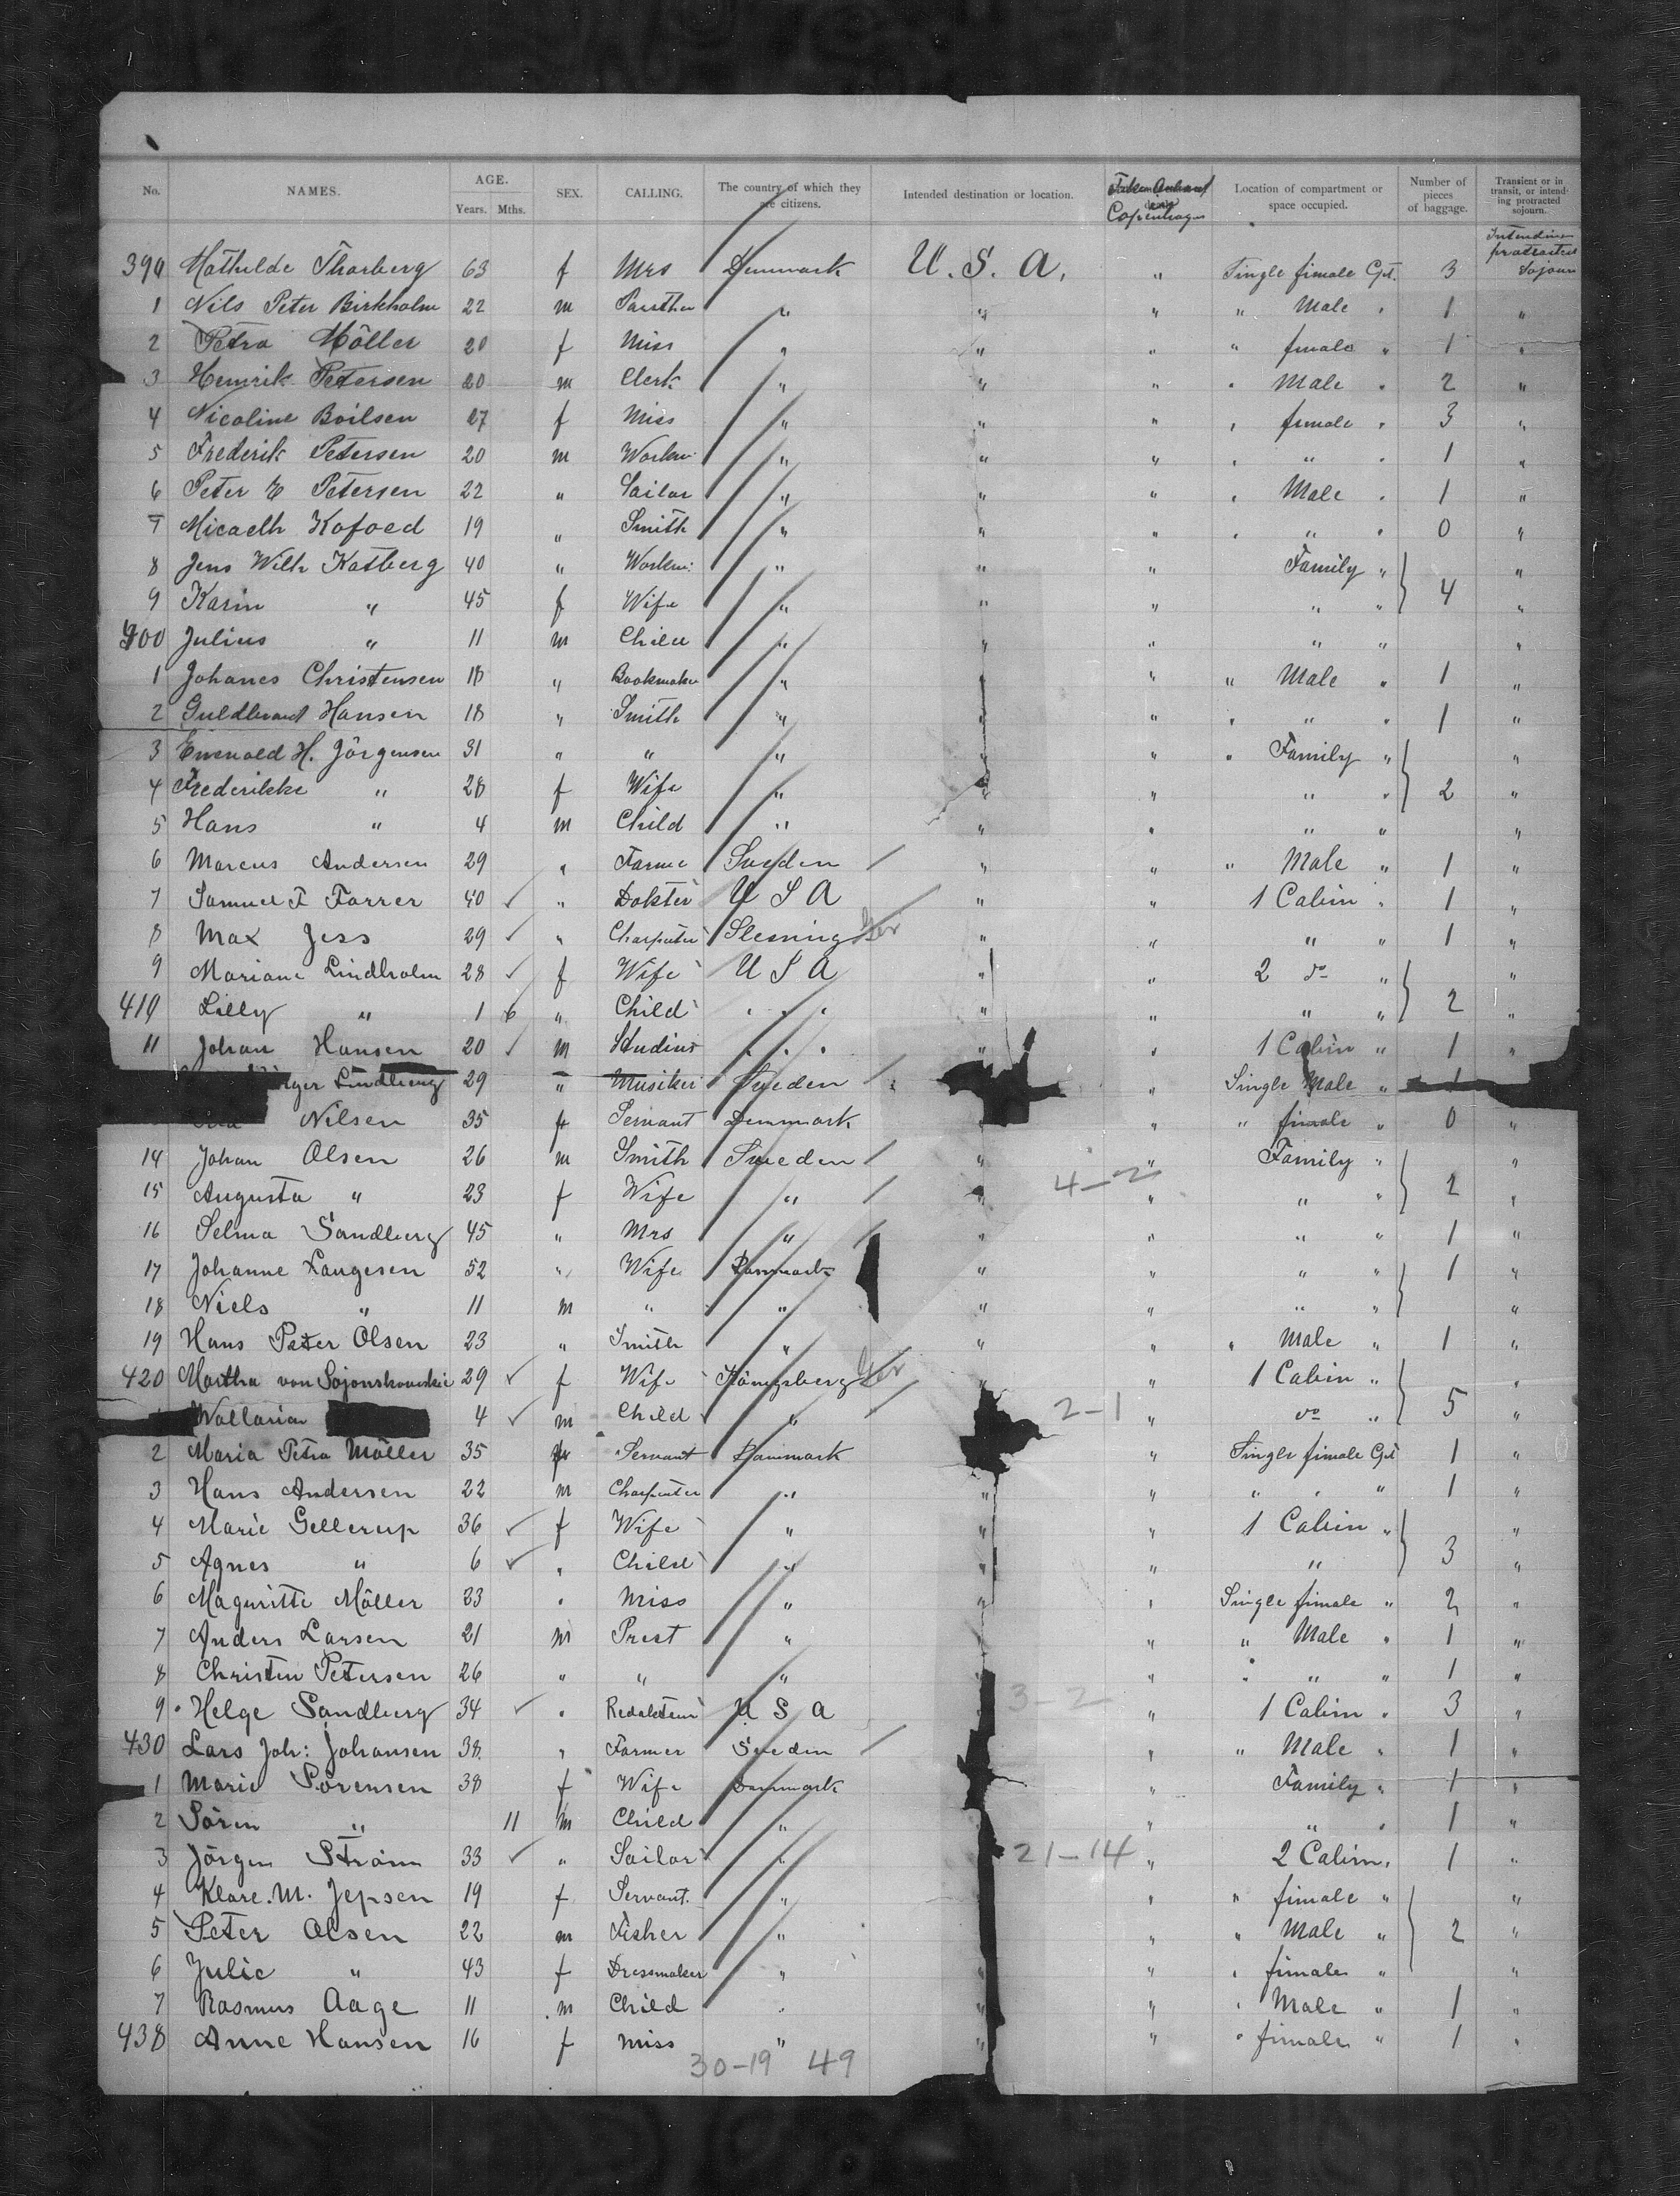 No. NAMES. AGE. Years. Mths. SEX. CALLING. The country of which they are citizens. Intended destination or location. Copenhagen Location of compartment or space occupied. Number of pieces of baggage. Transient or in transit, or intending protracted sojourn.
390 Mathilde Thorberg 63 f Mrs Denmark U. S. A. " Single fimale Cpt. 3 Intending protracted Sojourn
1 Nils Peter Birkholm 22 m " " " " Male " 1 "
2 Petra Möller 20 f Miss " " " " fimale " 1 "
3 Henrik Petersen 20 m Clerk " " " " Male " 2 "
4 Nicoline Boilsen 27 f Miss " " " " fimale " 3 "
5 Frederik Petersen 20 m Workm. " " " " " " 1 "
6 Peter E Petersen 22 " Sailor " " " " Male " 1 "
7 Micaelh Kofoed 19 " Smith " " " " " " 0 "
8 Jens Wilh Kasberg 40 " Workm: " " " Family " "
9 Karin " 45 f Wife " " " " " 4 "
400 Julius " 11 m Child " " " " " "
1 Johanes Christensen 18 " Bookmaker " " " " Male " 1 "
2 Guldbrand Hansen 18 " Smith " " " " " " 1 "
3 H. Jörgensen 31 " " " " " " Family " "
4 Frederikke " 28 f Wife " " " " " 2 "
5 Hans " 4 m Child " " " " " "
6 Marcus Andersen 29 " Farme Sweden " " " Male " 1 "
7 Samuel F Farrer 40 " Dokter U S A " " 1 Cabin " 1 "
8 Max Jess 29 " Charpenter Slesvig Ger " " " " 1 "
9 Mariane Lindholm 28 f Wife U S A " " 2 do " "
410 Lilly " 1 6 " Child " " " " " " " 2 "
11 Johan Hansen 20 m Studius " " " " " 1 Cabin " 1 "
Lindberg 29 " Musiker Sweden " Single Male " 1
Nilsen 35 f Servant Denmark " " " fimale " 0 "
14 Johan Olsen 26 m Smith Sweden " " Family " "
15 Augusta " 23 f Wife " " 4-2 " " " 2 "
16 Selma Sandberg 45 " Mrs " " " " " 1 "
17 Johanne Langesen 52 " Wife Danmark " " " " 1 "
18 Niels " 11 m " " " " " " "
19 Hans Peter Olsen 23 " Smith " " " " Male " 1 "
420 Martha von 29 f Wife Königsberg Ger " " 1 Cabin " "
Wallarian 4 m Child " 2-1 " do " 5 "
2 Maria Petra Möller 35 f Servant Danmark " Single fimale Cpt 1 "
3 Hans Andersen 22 m Charpenter " " " " " " 1 "
4 Marie Gellerup 36 f Wife " " " 1 Cabin " "
5 Agnes " 6 " Child " " " " 3 "
6 Maguritte Möller 23 " Miss " " " Single fimale " 2 "
7 Anders Larsen 21 m Prest " " " " Male " 1 "
8 Christen Petersen 26 " " " " " " " 1 "
9 Helge Sandberg 34 " U S A 3-2 " 1 Cabin " 3 "
430 Lars Joh: Johansen 38 " Farmer Sweden " " Male " 1 "
1 Marie Sörensen 38 f Wife Danmark " Family " 1 "
2 Sören " 11 m Child " " " " 1 "
3 Jörgen Ström 33 " Sailor " 21-14 " 2 Cabin " 1 "
4 Klare. M. Jepsen 19 f Servant. " " " fimale " "
5 Peter Olsen 22 m Fisher " " " Male " 2 "
6 Julie " 43 f Dressmaker " " " " fimale " "
7 Rasmus Aage 11 m Child " " " " Male " 1 "
438 Anne Hansen 16 f Miss " " " " fimale " 1 "
30-19 49